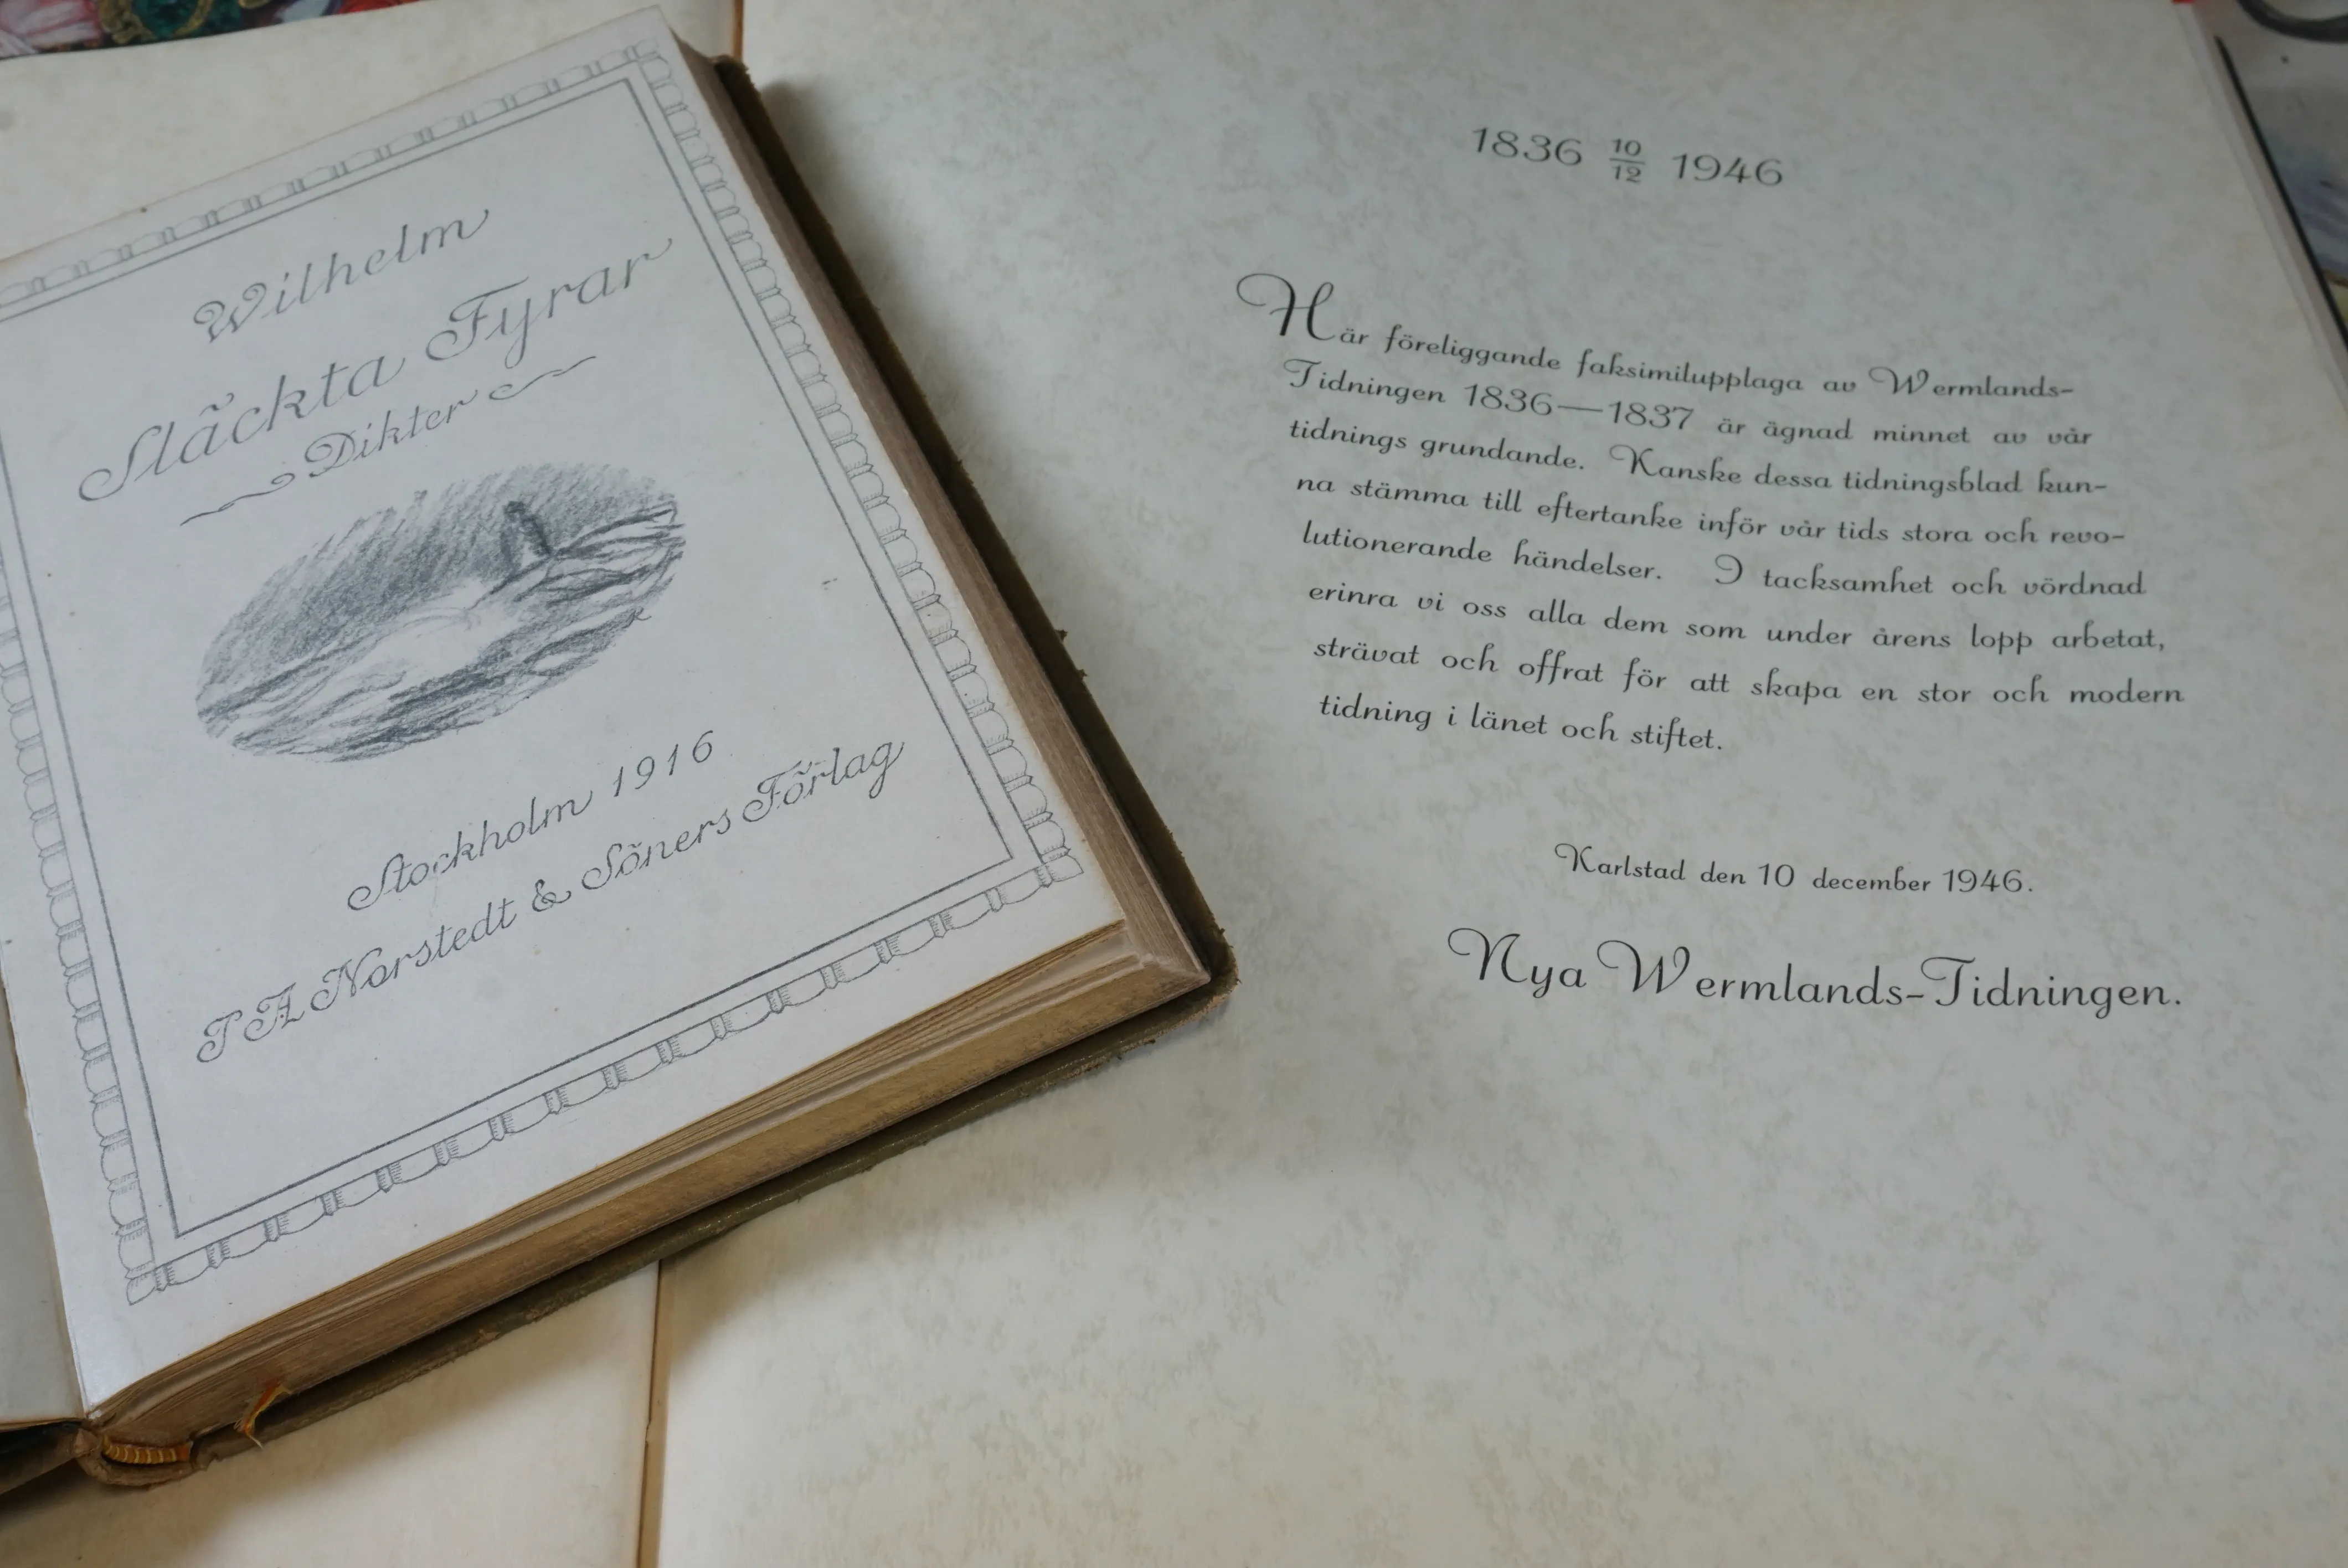 Wilhelm
Släckta Fyrar
Dikter
Stockholm 1916
P A Norstedt & Söners Förlag
1836 10/12 1946
Här föreliggande faksimilupplaga av Wermlands-
Tidningen 1836—1837 är ägnad minnet av vår
tidnings grundande. Kanske dessa tidningsblad kun-
na stämma till eftertanke inför vår tids stora och revo-
lutionerande händelser. I tacksamhet och vördnad
erinra vi oss alla dem som under årens lopp arbetat,
strävat och offrat för att skapa en stor och modern
tidning i länet och stiftet.
Karlstad den 10 december 1946.
Nya Wermlands-Tidningen.